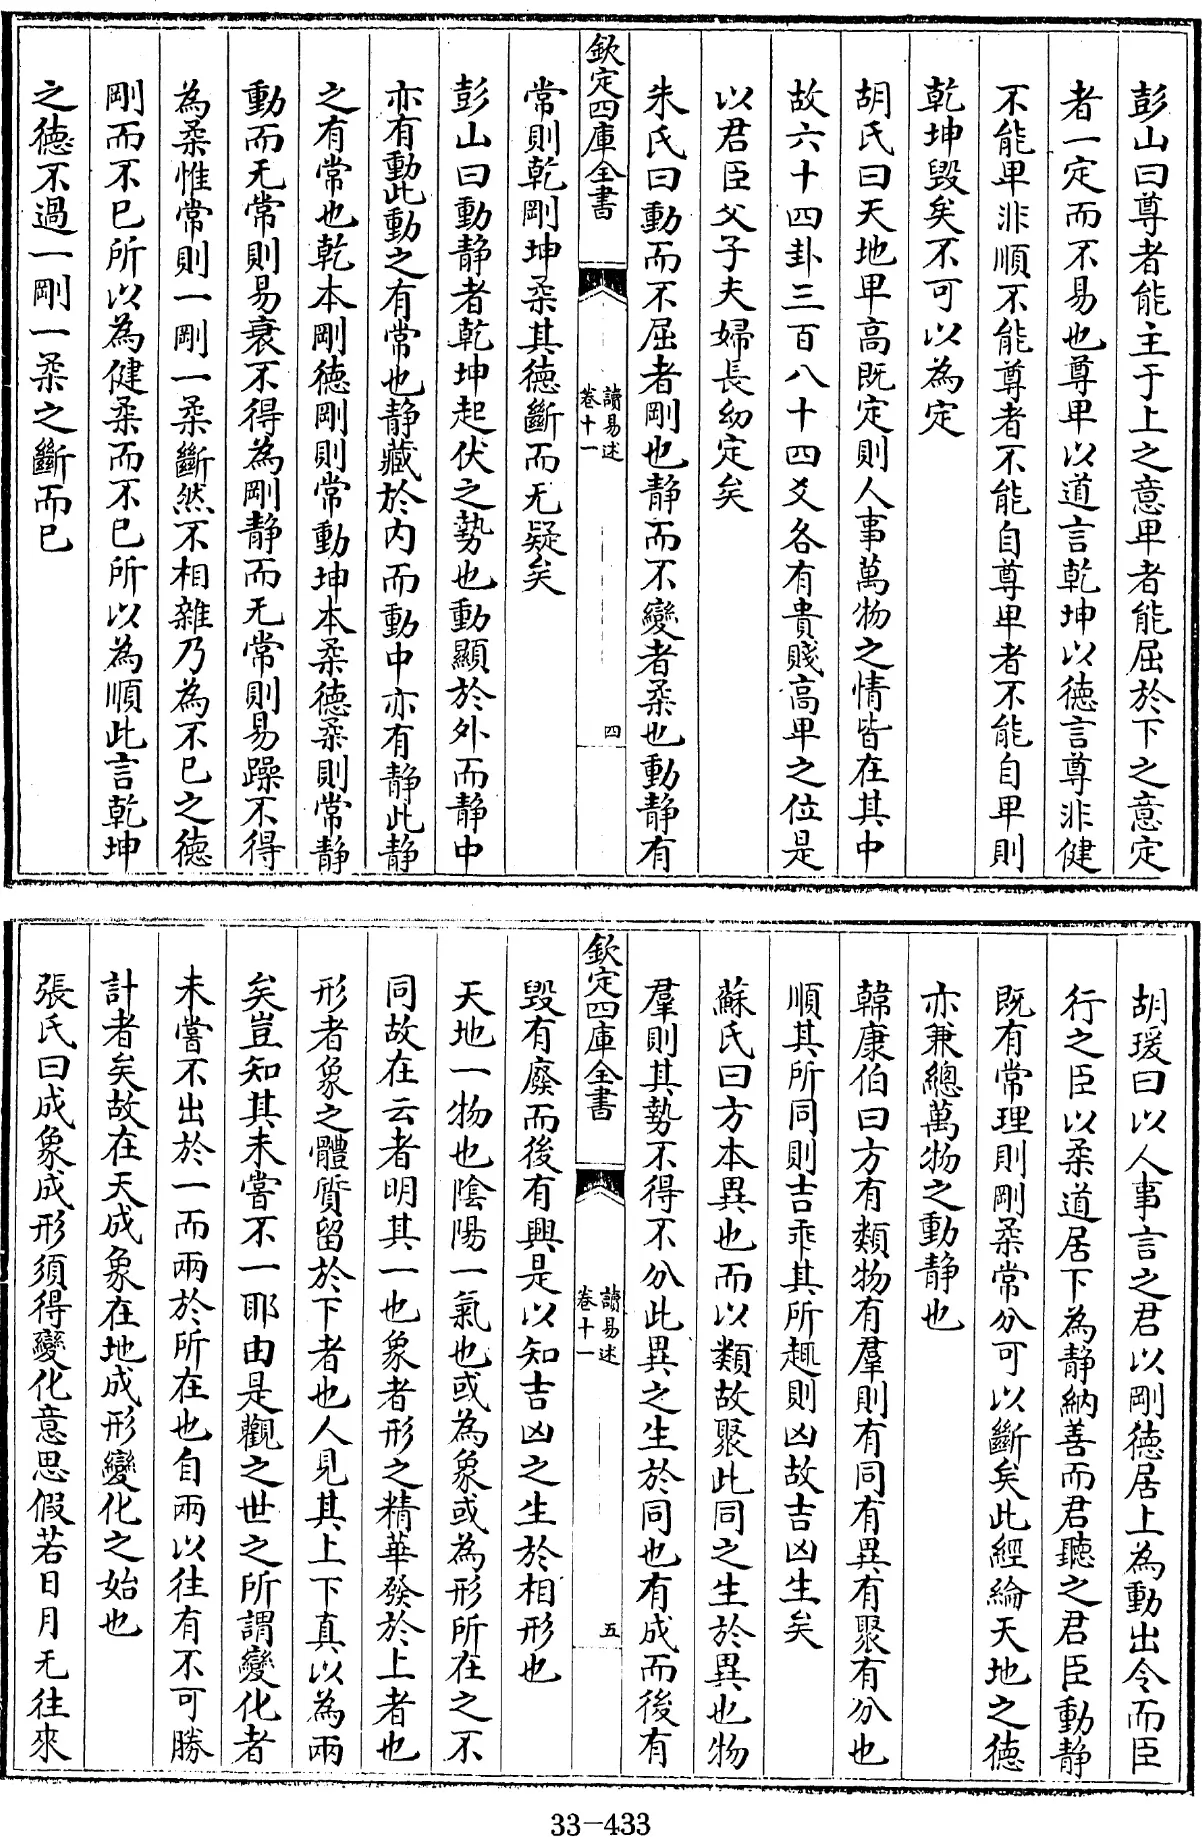 彭山曰尊者能主于上之意卑者能屈於下之意定
者一定而不易也尊卑以道言乾坤以德言尊非健
不能卑非順不能尊者不能自尊卑者不能自卑則
乾坤毀矣不可以為定
胡氏曰天地卑高既定則人事萬物之情皆在其中
故六十四卦三百八十四爻各有貴賤高卑之位是
以君臣父子夫婦長幼定矣
朱氏曰動而不屈者剛也静而不變者柔也動静有
欽定四庫全書
讀易述
卷十一
四
常則乾剛坤柔其德斷而无疑矣
彭山曰動静者乾坤起伏之勢也動顯於外而静中
亦有動此動之有常也静藏於内而動中亦有静此静
之有常也乾本剛德剛則常動坤本柔德柔則常静
動而无常則易衰不得為剛静而无常則易躁不得
為柔惟常則一剛一柔斷然不相雜乃為不已之德
剛而不已所以為健柔而不已所以為順此言乾坤
之德不過一剛一柔之斷而已
胡瑗曰以人事言之君以剛德居上為動出令而臣
行之臣以柔道居下為静納善而君聽之君臣動静
既有常理則剛柔常分可以斷矣此經綸天地之德
亦兼總萬物之動静也
韓康伯曰方有類物有羣則有同有異有聚有分也
順其所同則吉乖其所趣則凶故吉凶生矣
蘇氏曰方本異也而以類故聚此同之生於異也物
羣則其勢不得不分此異之生於同也有成而後有
欽定四庫全書
讀易述
卷十一
五
毀有廢而後有興是以知吉凶之生於相形也
天地一物也陰陽一氣也或為象或為形所在之不
同故在云者明其一也象者形之精華發於上者也
形者象之體質留於下者也人見其上下真以為兩
矣豈知其未嘗不一耶由是觀之世之所謂變化者
未嘗不出於一而兩於所在也自兩以往有不可勝
計者矣故在天成象在地成形變化之始也
張氏曰成象成形須得變化意思假若日月无往來
33-433